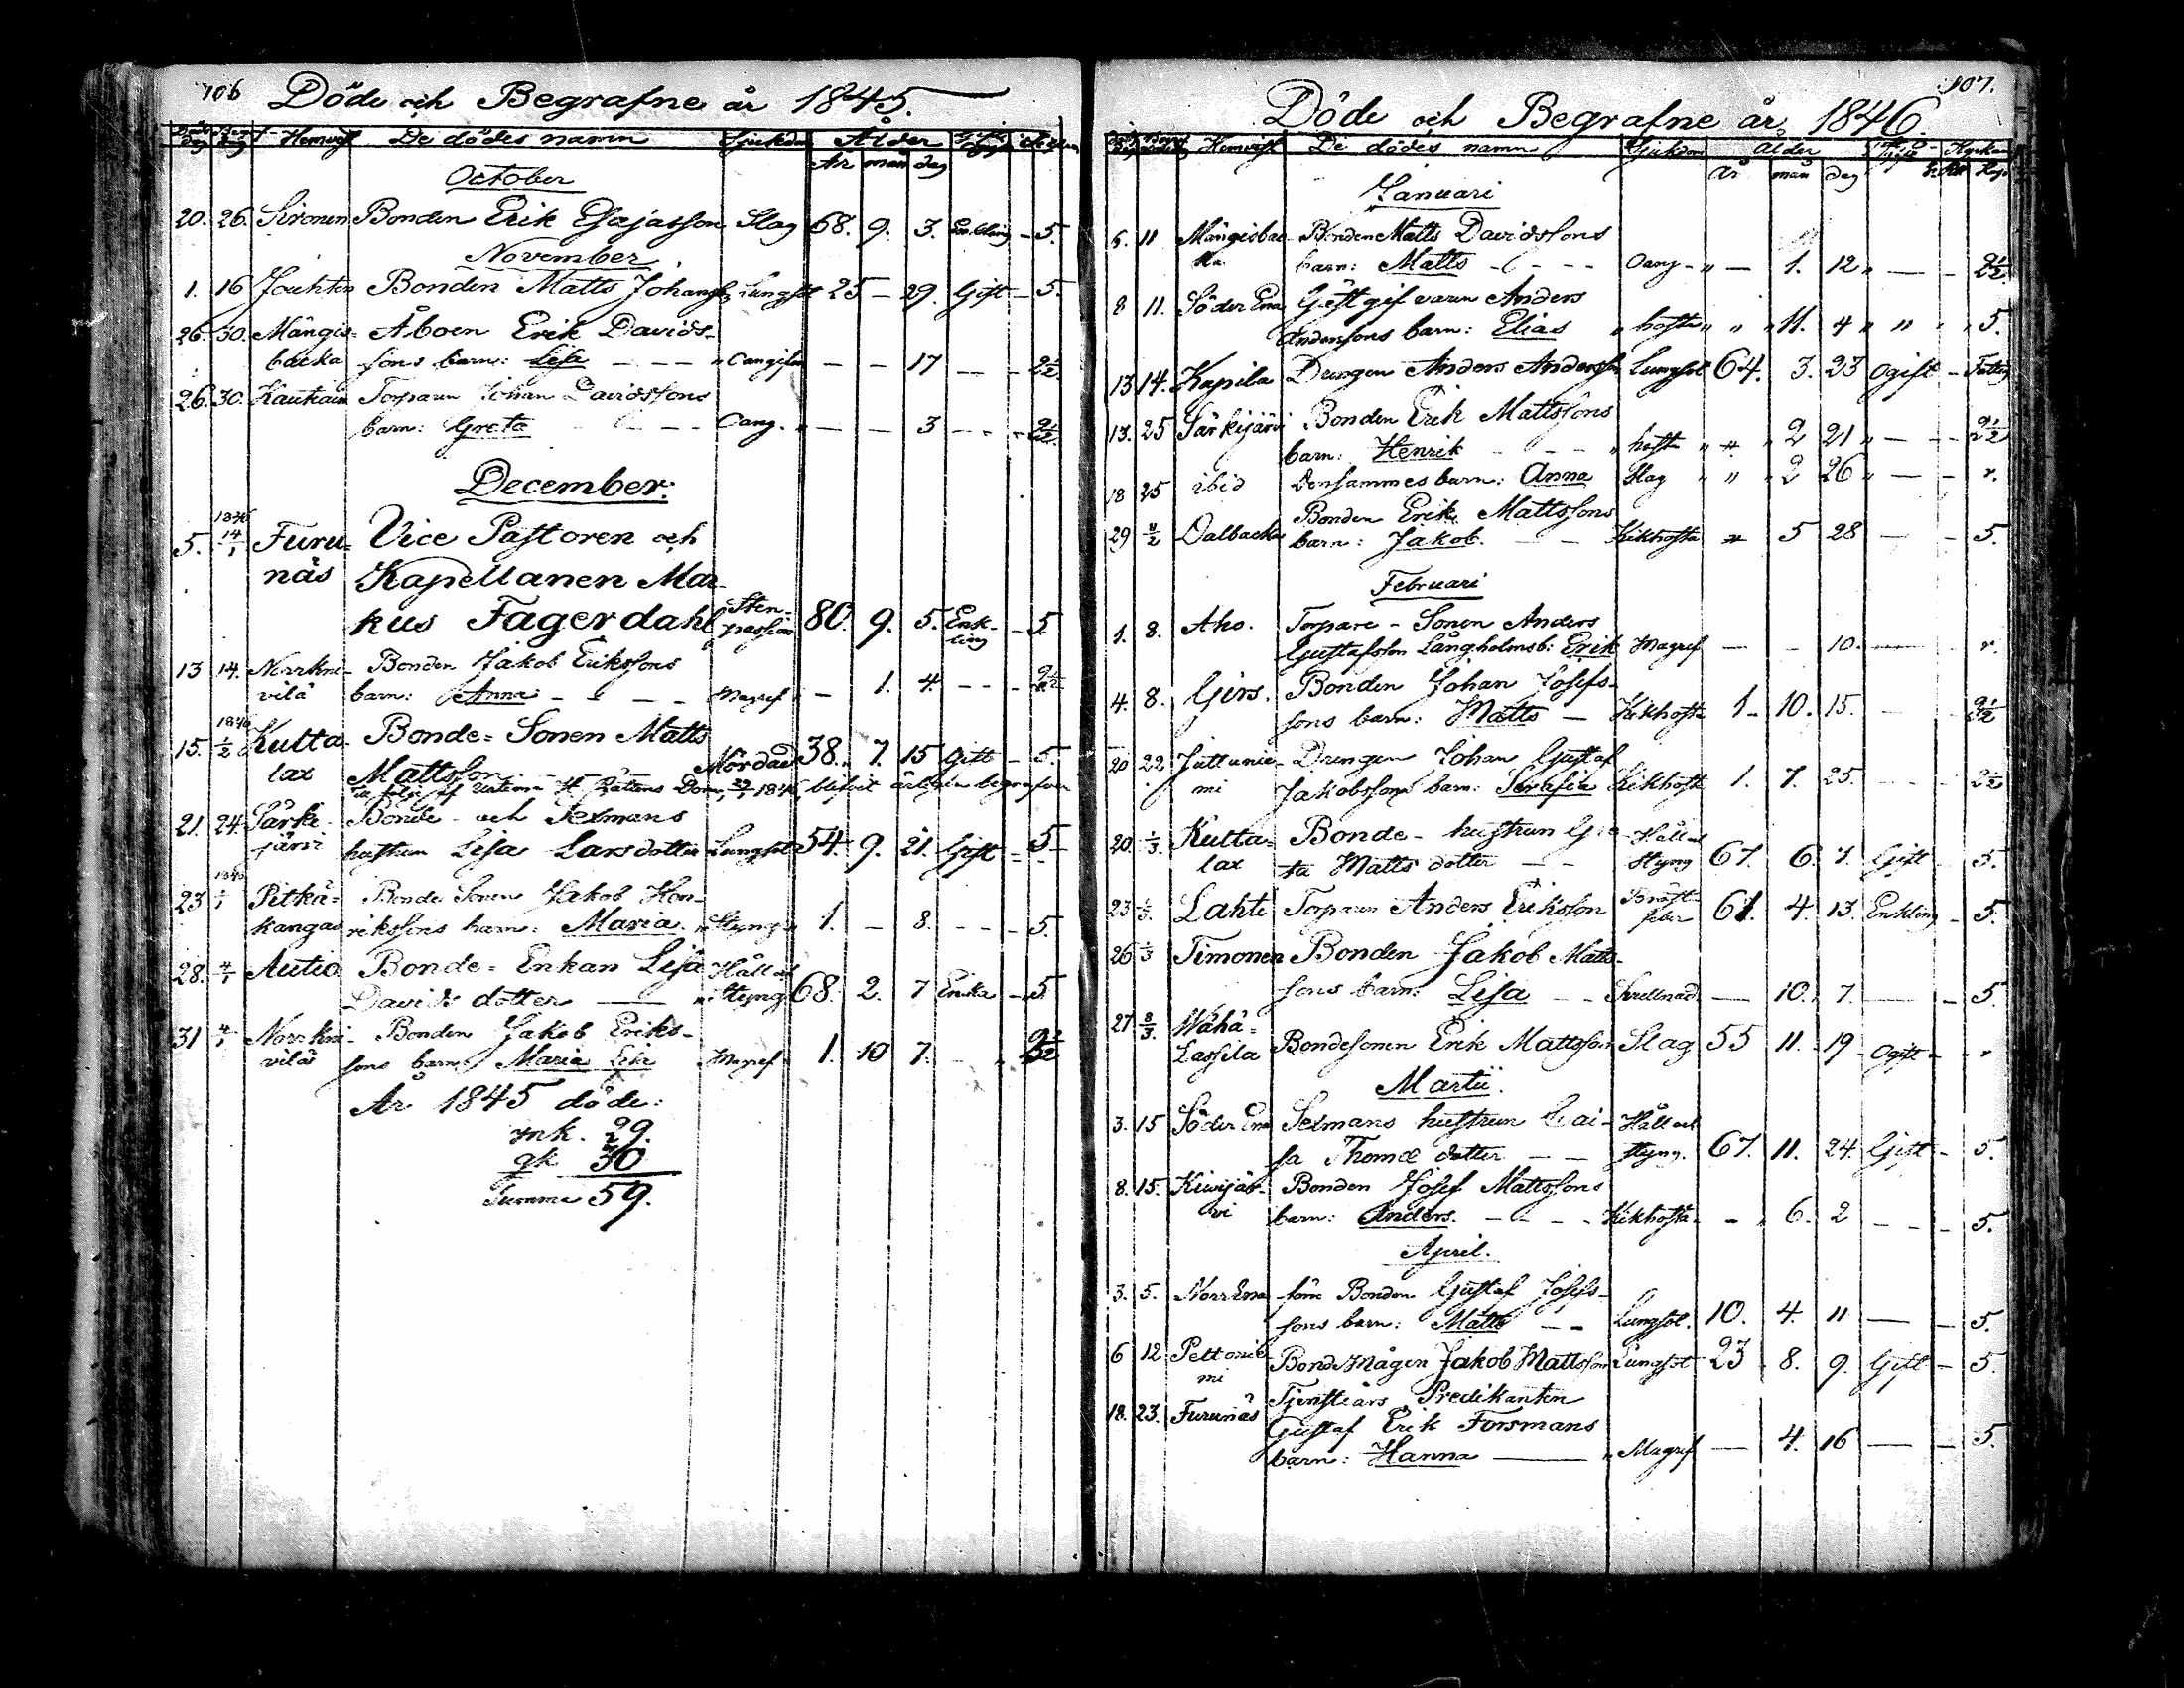 106 Döde och Begrafne år 1845.
Hemvist De dödes namn Sjukdom Ålder
År mån dag
October
20. 26. Sironen Bonden Erik Esajasson Slag 68. 9. 3. Enkling - 5.
November
1. 16 Bonden Matts Johanss Lungsot 25 - 29. Gift - 5.
26. 30. Mångis= Åboen Erik Davids-
backa sons barn: Lisa - - - - - 17 - - 2½.
26. 30. Kaukain Torparen Johan Davidssons
barn: Greta - - - Oang. - - 3 - - 2½.
December:
1846
5. 14/1 Furu= Vice Pastoren och
näs Kapellanen Mar-
kus Fagerdahl Sten-passion 80. 9. 5. Enk-ling - 5.
13 14. Norrkni- Bonden Jakob Erikssons
vilä barn: Anna - - - Magref - 1. 4. - - 2½
1846
15. 1/2 Kutta- Bonde= Sonen Matts
lax Mattsson. Mördad 38. 7. 15 Gift - 5.
Dom, 1846, blifvit ärligen begrafven
21. 24. Särki- Bonde- och Sexmans
järvi hustrun Lisa Larsdotter Lungsot 54. 9. 21. Gift - 5-
23 1/1 Pitkä= Bonde Sonen Jakob Hen-
kangas rikssons barn: Maria. Styng 1. - 8. - - - 5.
28. 4/1 Autio Bonde= Enkan Lisa Håll och
Davids dotter - Styng 68. 2. 7 Enka - 5
31 4/1 Norrkni- Bonden Jakob Eriks-
vilä sons barn: Maria Lisa Magref 1. 10 7. - 2½
År 1845 döde:
mk. 29.
qk 30
Summa 59.
107.
Döde och Begrafne år 1846.
Hemvist De dödes namn Sjukdom Ålder
År mån dag
Januari
6. 11 Mångisbac- Bonden Matts Davidssons
ka. barn: Matts - - - Oang - " - 1. 12 " - - 2½
8 11. Söder Ena Gästgifvaren Anders
Anderssons barn: Elias " hosta " " " 11. 4 " " " 5.
13 14. Kapila Drengen Anders Andersson Lungsot 64. 3. 23 Ogift - Fattig
13. 25 Särkijärvi Bonden Erik Mattssons
barn: Henrik - - - " hosta " " " 2 21 " - - 2½
18 25 ibid Densammes barn: Anna Slag " " " 2 26 " - - r.
Bonden Erik Mattssons
29 Dalbacka barn: Jakob. - - Kikhosta " 5 28 - - 5.
Februari
1. 8. Aho. Torpare - Sonen Anders
Gustafsson Långholmsb: Erik Magref - - 10. - r.
4. 8. Girs. Bonden Johan Josefs-
sons barn: Matts - Kikhosta 1 - 10. 15. - - 2½
20 22 Juttunie- Drengen Johan Gustaf
mi Jakobssons barn: Serafia Kikhosta 1. 7. 25. - - - 2½
20. 1/3. Kutta= Bonde- hustrun Gre- Håll och
lax ta Matts dotter - - Styng 67. 6. 7. Gift - 5.
23 1/3. Lahti Torparen Anders Eriksson Bröst-feber 61. 4. 13. Enkling - 5.
26 1/3 Timonen Bonden Jakob Matts-
sons barn: Lisa - - - 10. 7. - - 5.
27 8/3. Wähä=
Lassila Bondesonen Erik Mattsson Slag 55 11. 19 - Ogift - - r
Martii.
3. 15 Söder Ena Sexmans hustrun Cai- Håll och
sa Thomæ dotter - - Styng. 67. 11. 24. Gift - 5.
8. 15. Kivijär- Bonden Josef Mattssons
vi barn: Anders. - - - Kikhosta - - 6. 2 - - - 5.
April.
3. 5. Norr Ena förre Bonden Gustaf Josefs-
sons barn: Matts - - Lungsot. 10. 4. 11 - - 5.
6 12 Peltonie
mi Bondemågen Jakob Mattsson Lungsot 23 8. 9. Gift - 5.
18. 23. Furunäs Tjensteårs Predikanten
Gustaf Erik Forsmans
barn: Hanna - " Magref - 4. 16 - - 5.